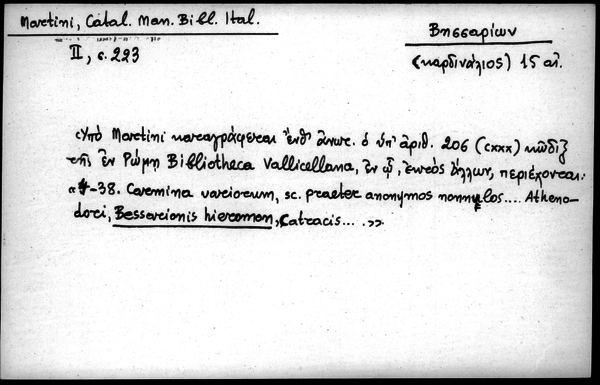 Martini, Catal. Man. Bibl. Ital.
II, σ. 223
Βησσαρίων
(καρδινάλιος) 15 αἰ.
Ὑπὸ Martini καταγράφεται ἔνθ' ἄνωτ. ὁ ὑπ' ἀριθ. 206 (CXXX) κῶδιξ
τῆς ἐν Ρώμῃ Bibliotheca Vallicellana, ἐν ᾧ, ἐκτὸς ἄλλων, περιέχονται:
-38. Carmina variorum, sc. praeter anonymos nonnullos.... Atheno-
dori, Bessarionis hieromon, Catracis... .»